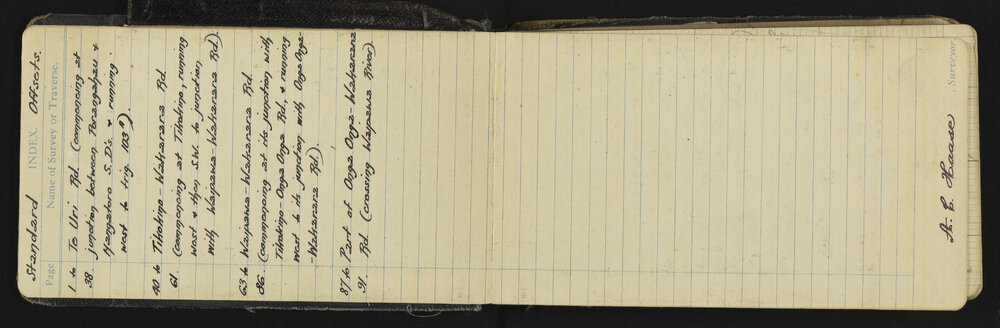 Standard INDEX. Offsets.
Page Name of Survey or Traverse.
1 to Te Uri Rd. (commencing at
38. junction between Porangahau &
Mangatoro S.D's. & running
west to trig. 103ᴬ).
40 to Tikokino-Wakarara Rd.
61. (commencing at Tikokino, running
west & then S.W. to junction
with Waipawa-Wakarara Rd).
63 to Waipawa-Wakarara Rd.
86. (commencing at its junction with
Tikokino-Onga Onga Rd., & running
west to its junction with Onga Onga-
-Wakarara Rd.).
87 to Part of Onga Onga-Wakarara
91. Rd. (crossing Waipawa River).
Haase
Surveyor.